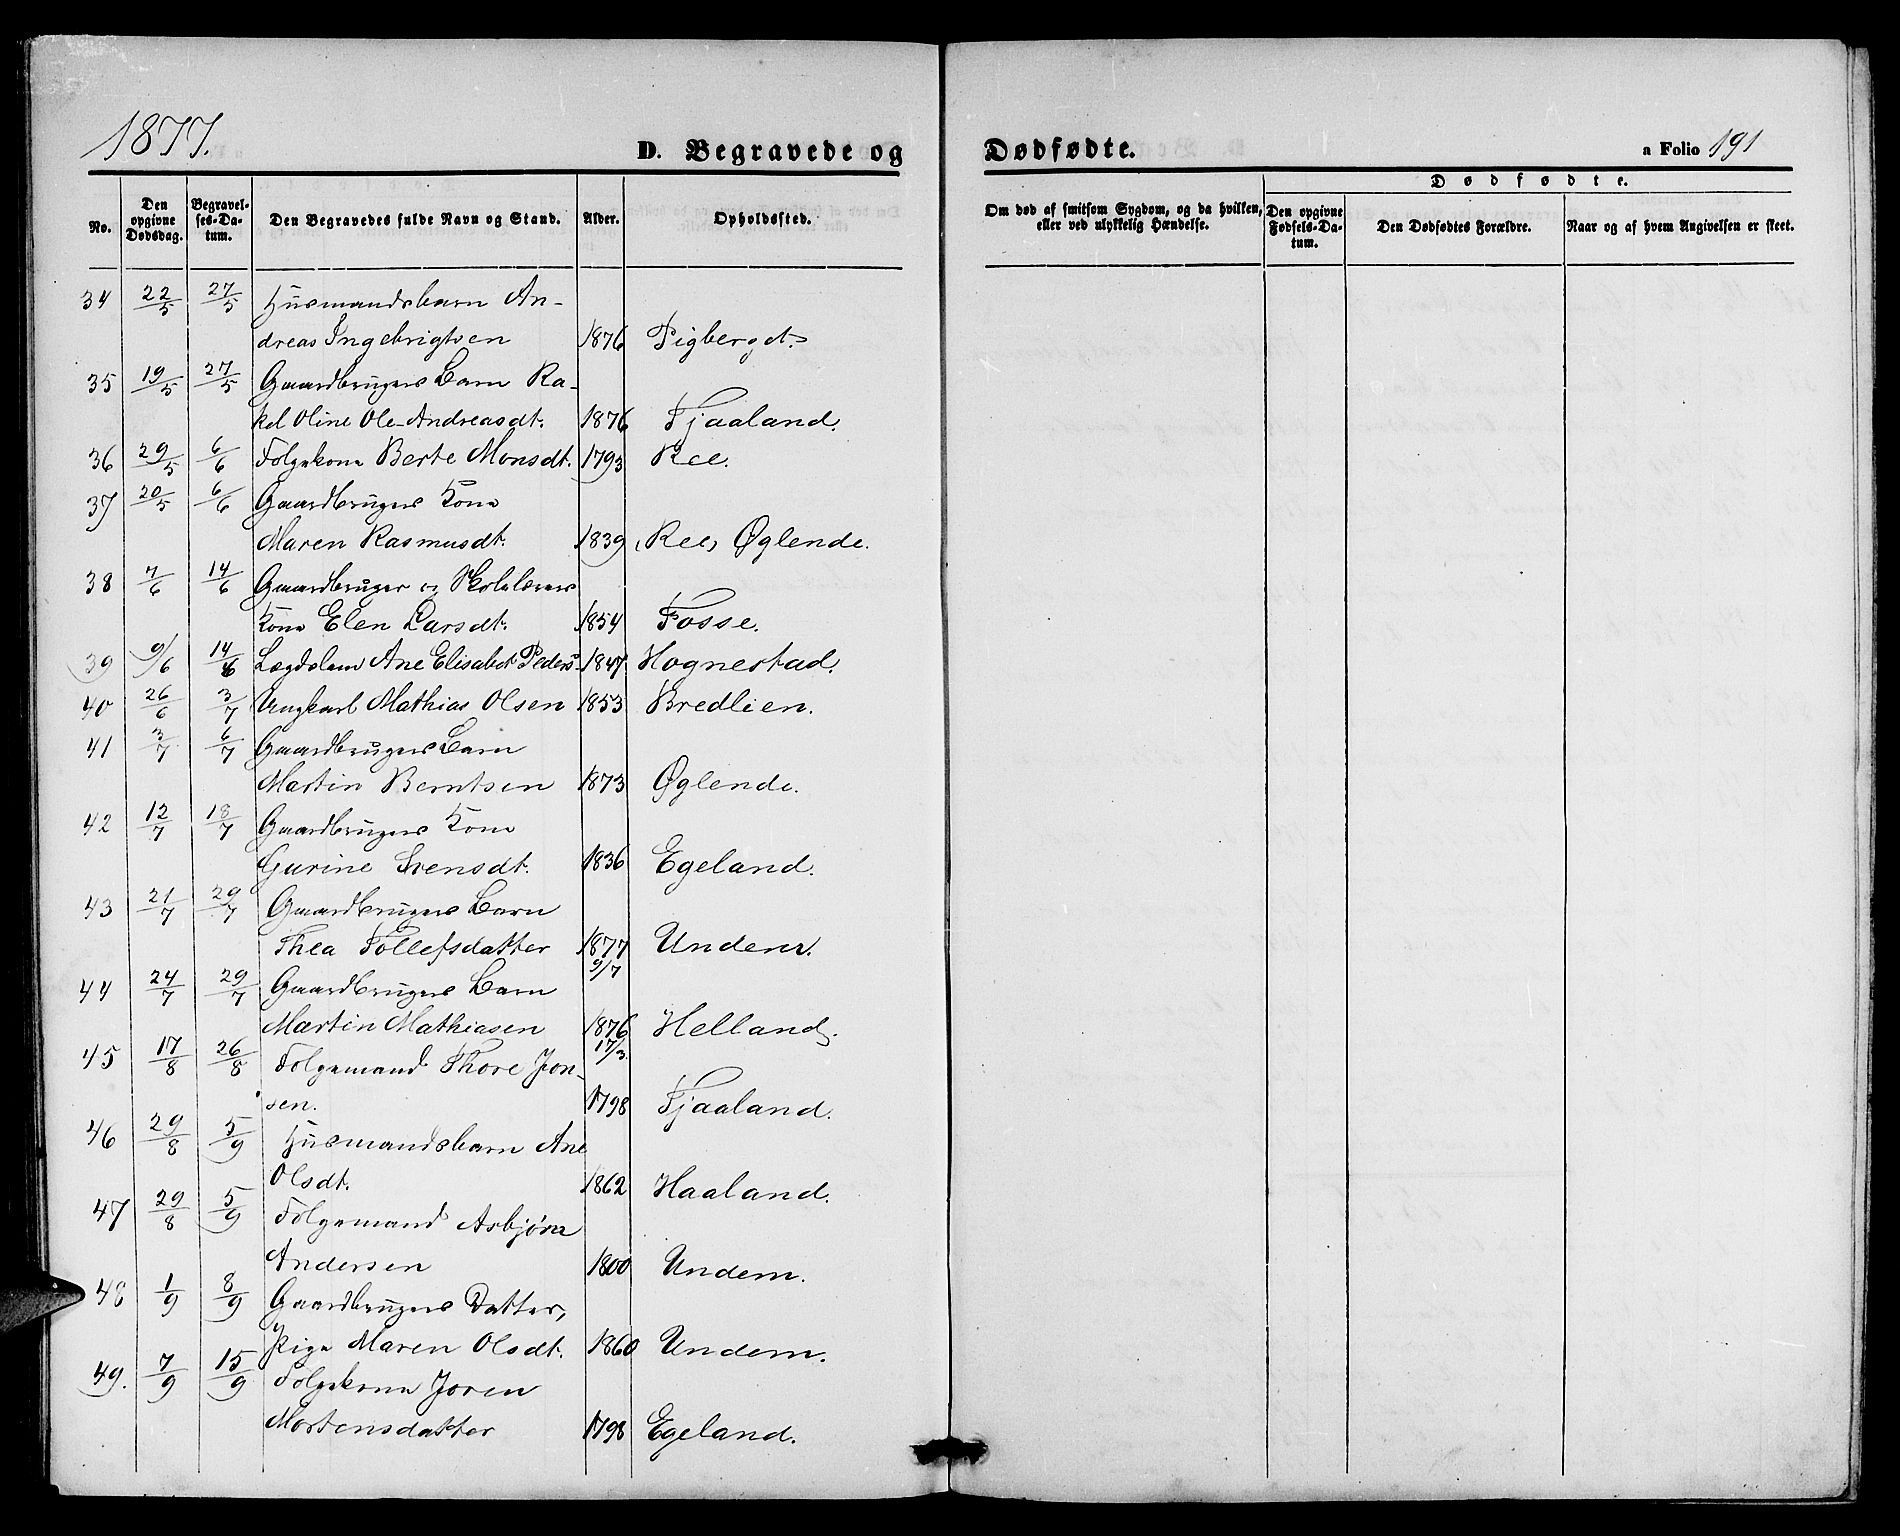 1877.
D. Begravede og
No.
Den opgivne Dødsdag.
Begravelses-Datum.
Den Begravedes fulde Navn og Stand.
Alder.
Opholdssted.
34 22/5 27/5 Husmandsbarn An-
dreas Ingebrigtsen 1876 Pigberget.
35 19/5 27/5 Gaardbrugers Barn Ra-
kel Oline Ole-Andreasdt. 1876 Fjaaland.
36 29/5 6/6 Folgekone Berte Monsdt. 1793 Ree.
37 20/5 6/6 Gaardbrugers Kone
Maren Rasmusdt. 1839 Ree, Øglende.
38 7/6 14/6 Gaardbruger og Skolelærers
Kone Elen Larsdt. 1854 Fosse.
39 9/6 14/6 Lægdslem Ane Elisabet Peders- 1847 Hognestad.
40 26/6 3/7 Ungkarl Mathias Olsen 1853 Bredlien.
41 3/7 6/7 Gaardbrugers Barn
Martin Berntsen 1873 Øglende.
42 12/7 18/7 Gaardbrugers Kone
Gurine Svensdt. 1836 Egeland.
43 21/7 29/7 Gaardbrugers Barn
Thea Tollefsdatter 1877 Undem.
9/7
44 24/7 29/7 Gaardbrugers Barn
Martin Mathiasen 1876 Helland.
17/3.
45 17/8 26/8 Folgemand Thore Jon-
sen. 1798 Fjaaland.
46 29/8 5/9 Husmandsbarn Ane
Olsdt. 1862 Haaland.
47 29/8 5/9 Folgemand Asbjørn
Andersen 1800 Undem.
48 1/9 8/9 Gaardbrugers Datter,
Pige Maren Olsdt. 1860 Undem.
49. 7/9 15/9 Folgekone Joren
Mortensdatter 1798 Egeland.
Dødfødte.
a Folio 191
Om død af smitsom Sygdom, og da hvilken,
eller ved ulykkelig Hændelse.
Dødfødte.
Den opgivne Fødsels-Datum.
Den Dødfødtes Forældre.
Naar og af hvem Angivelsen er skeet.